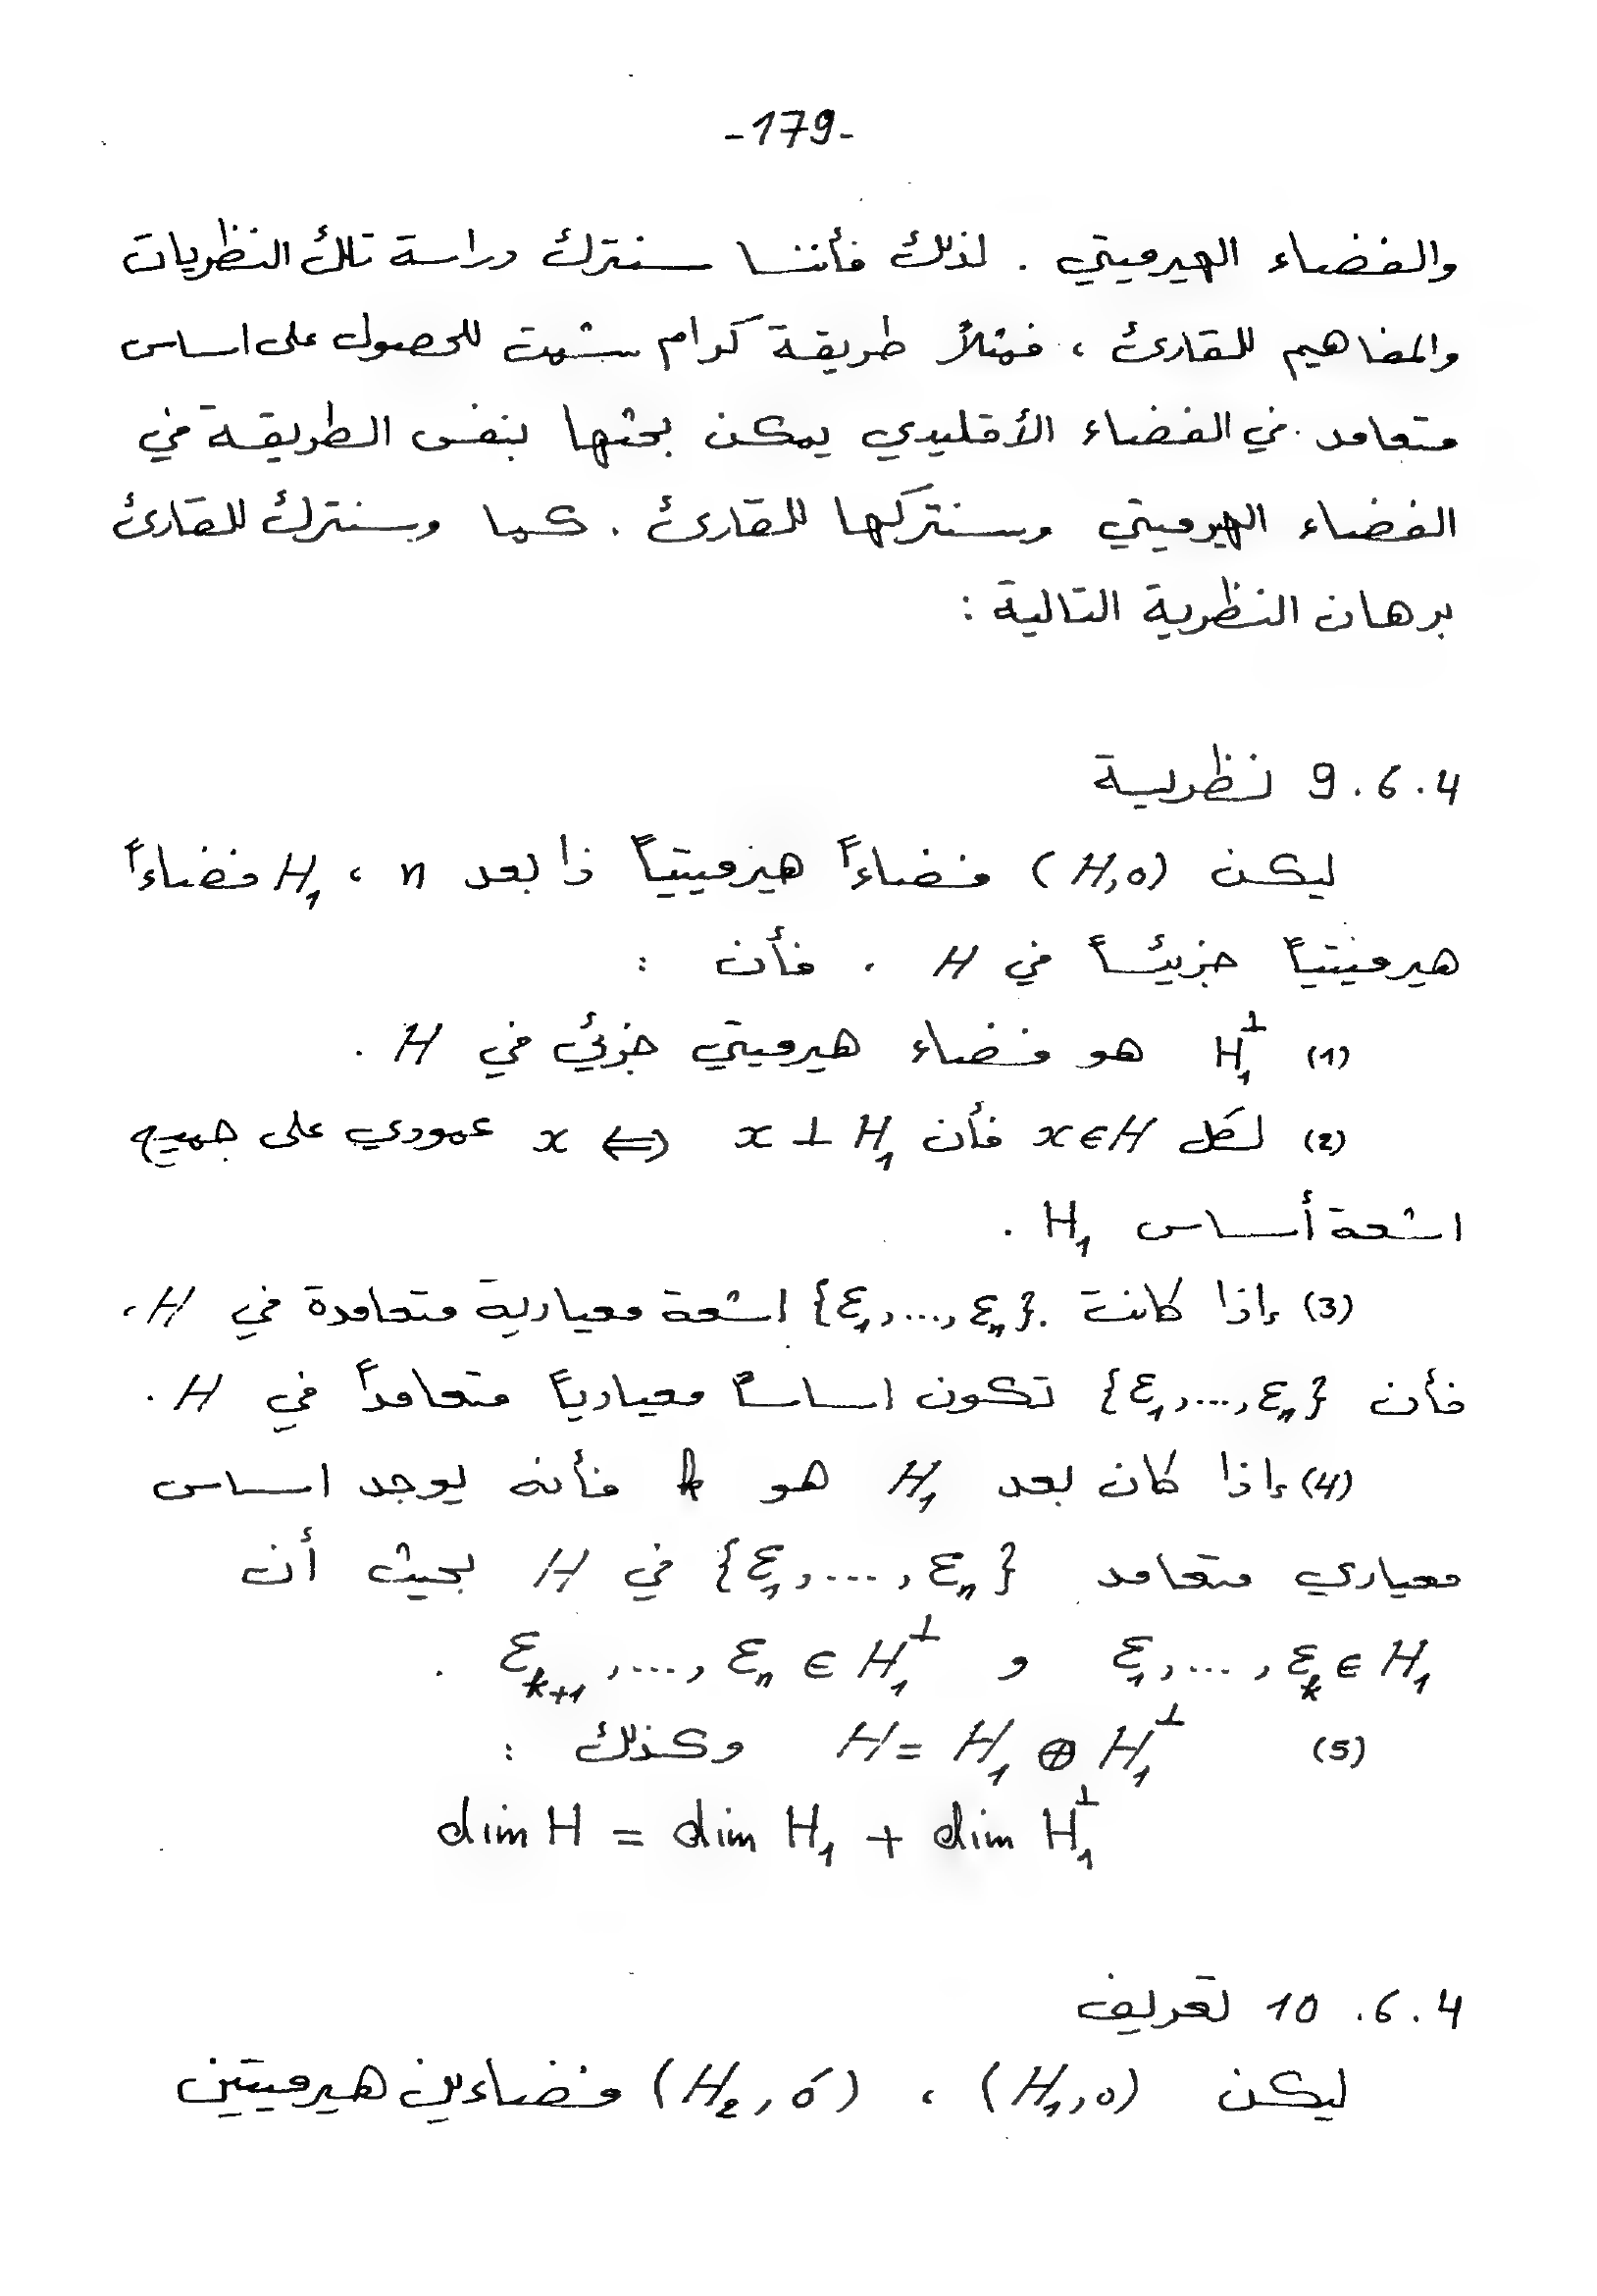 -179-
والفضاء الهيرميتي . لذلك فأننا سنترك دراسة تلك النظريات
والمفاهيم للقارئ ، فمثلاً طريقة كرام سشمت للحصول على اساس
متعامد في الفضاء الأقليدي يمكن بحثها بنفس الطريقة في
الفضاء الهيرميتي وسنتركها للقارئ . كما وسنترك للقارئ
برهان النظرية التالية :
9.6.4 نظرية
ليكن (H,o) فضاءاً هيرميتياً ذا بعد n ، H₁ فضاءاً
هيرميتياً جزيئاً في H . فأن :
(1) H₁^⊥ هو فضاء هيرميتي جزئي في H .
(2) لكل x∈H فأن x ⊥ H₁ ⇔ x عمودي على جميع
اشعة أساس H₁ .
(3) إذا كانت {ε₁,...,εₙ} اشعة معيارية متعامدة في H ،
فأن {ε₁,...,εₙ} تكون اساساً معيارياً متعامداً في H .
(4) إذا كان بعد H₁ هو k فأنه يوجد اساس
معياري متعامد {ε₁,....,εₙ} في H بحيث أن
ε₁,...,ε_k ∈ H₁ و ε_{k+1},...,εₙ ∈ H₁^⊥ .
(5) H = H₁ ⊕ H₁^⊥ وكذلك :
dim H = dim H₁ + dim H₁^⊥
10.6.4 تعريف
ليكن (H₁,o) ، (H₂,ó) فضاءين هيرميتين